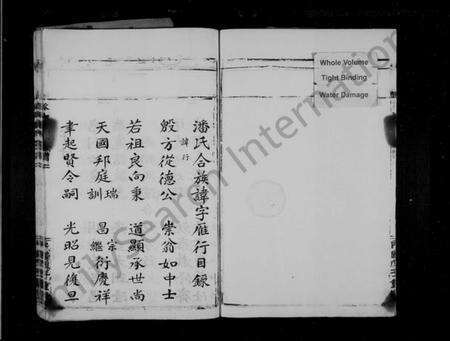 潘氏合族諱字雁行目錄
諱行
殷方從德公 崇翁如中士
若祖良向秉 道顯承世尚
天國邦庭瑞訓 昌宗繼衍慶祥
聿起賢令嗣 光昭見復旦
Whole Volume
Tight Binding
Water Damage
FamilySearch International